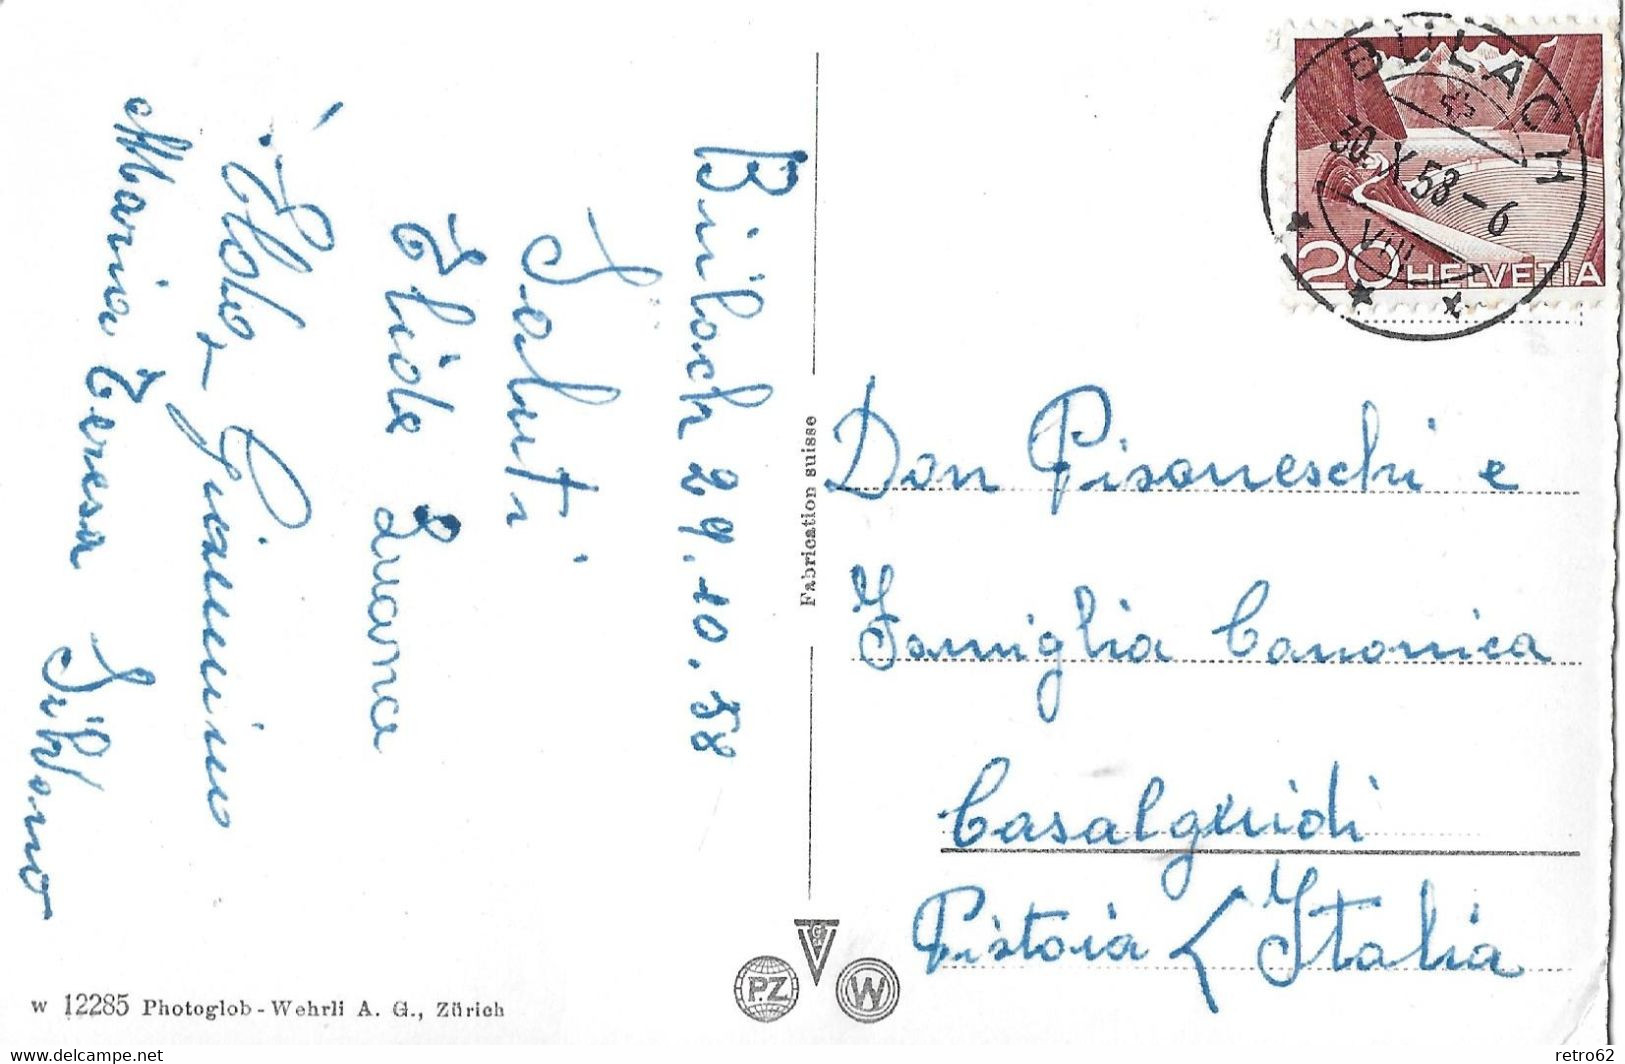 Bülach 29.10.58
Saluti
Elide Luana
Giannino
Maria Teresa Silvano
Fabrication suisse
BÜLACH
30.X.58-6
VIII
20 HELVETIA
Don Pisaneschi e
Famiglia Canonica
Casalguidi
Pistoia Italia
PZ
VG
W
W 12285 Photoglob-Wehrli A. G., Zürich
www.delcampe.net
retro62